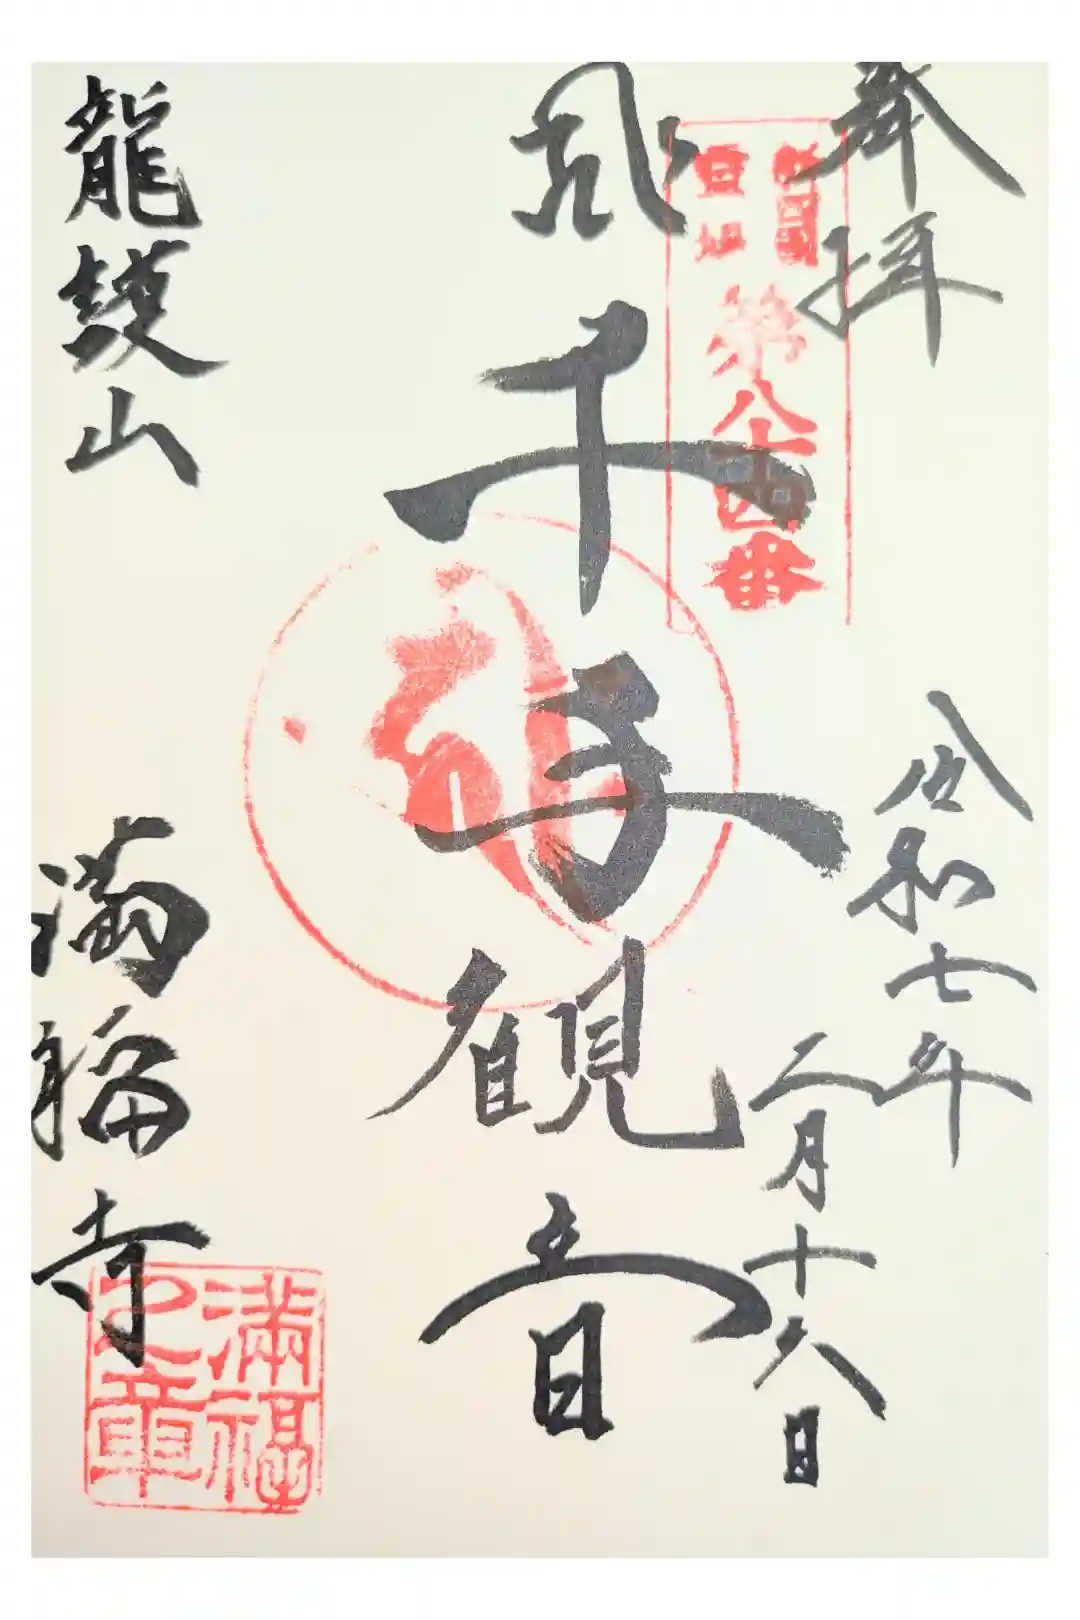 奉拝
第八十四番
令和七年
二月十六日
千手観音
龍護山
満福寺
滿福
之章